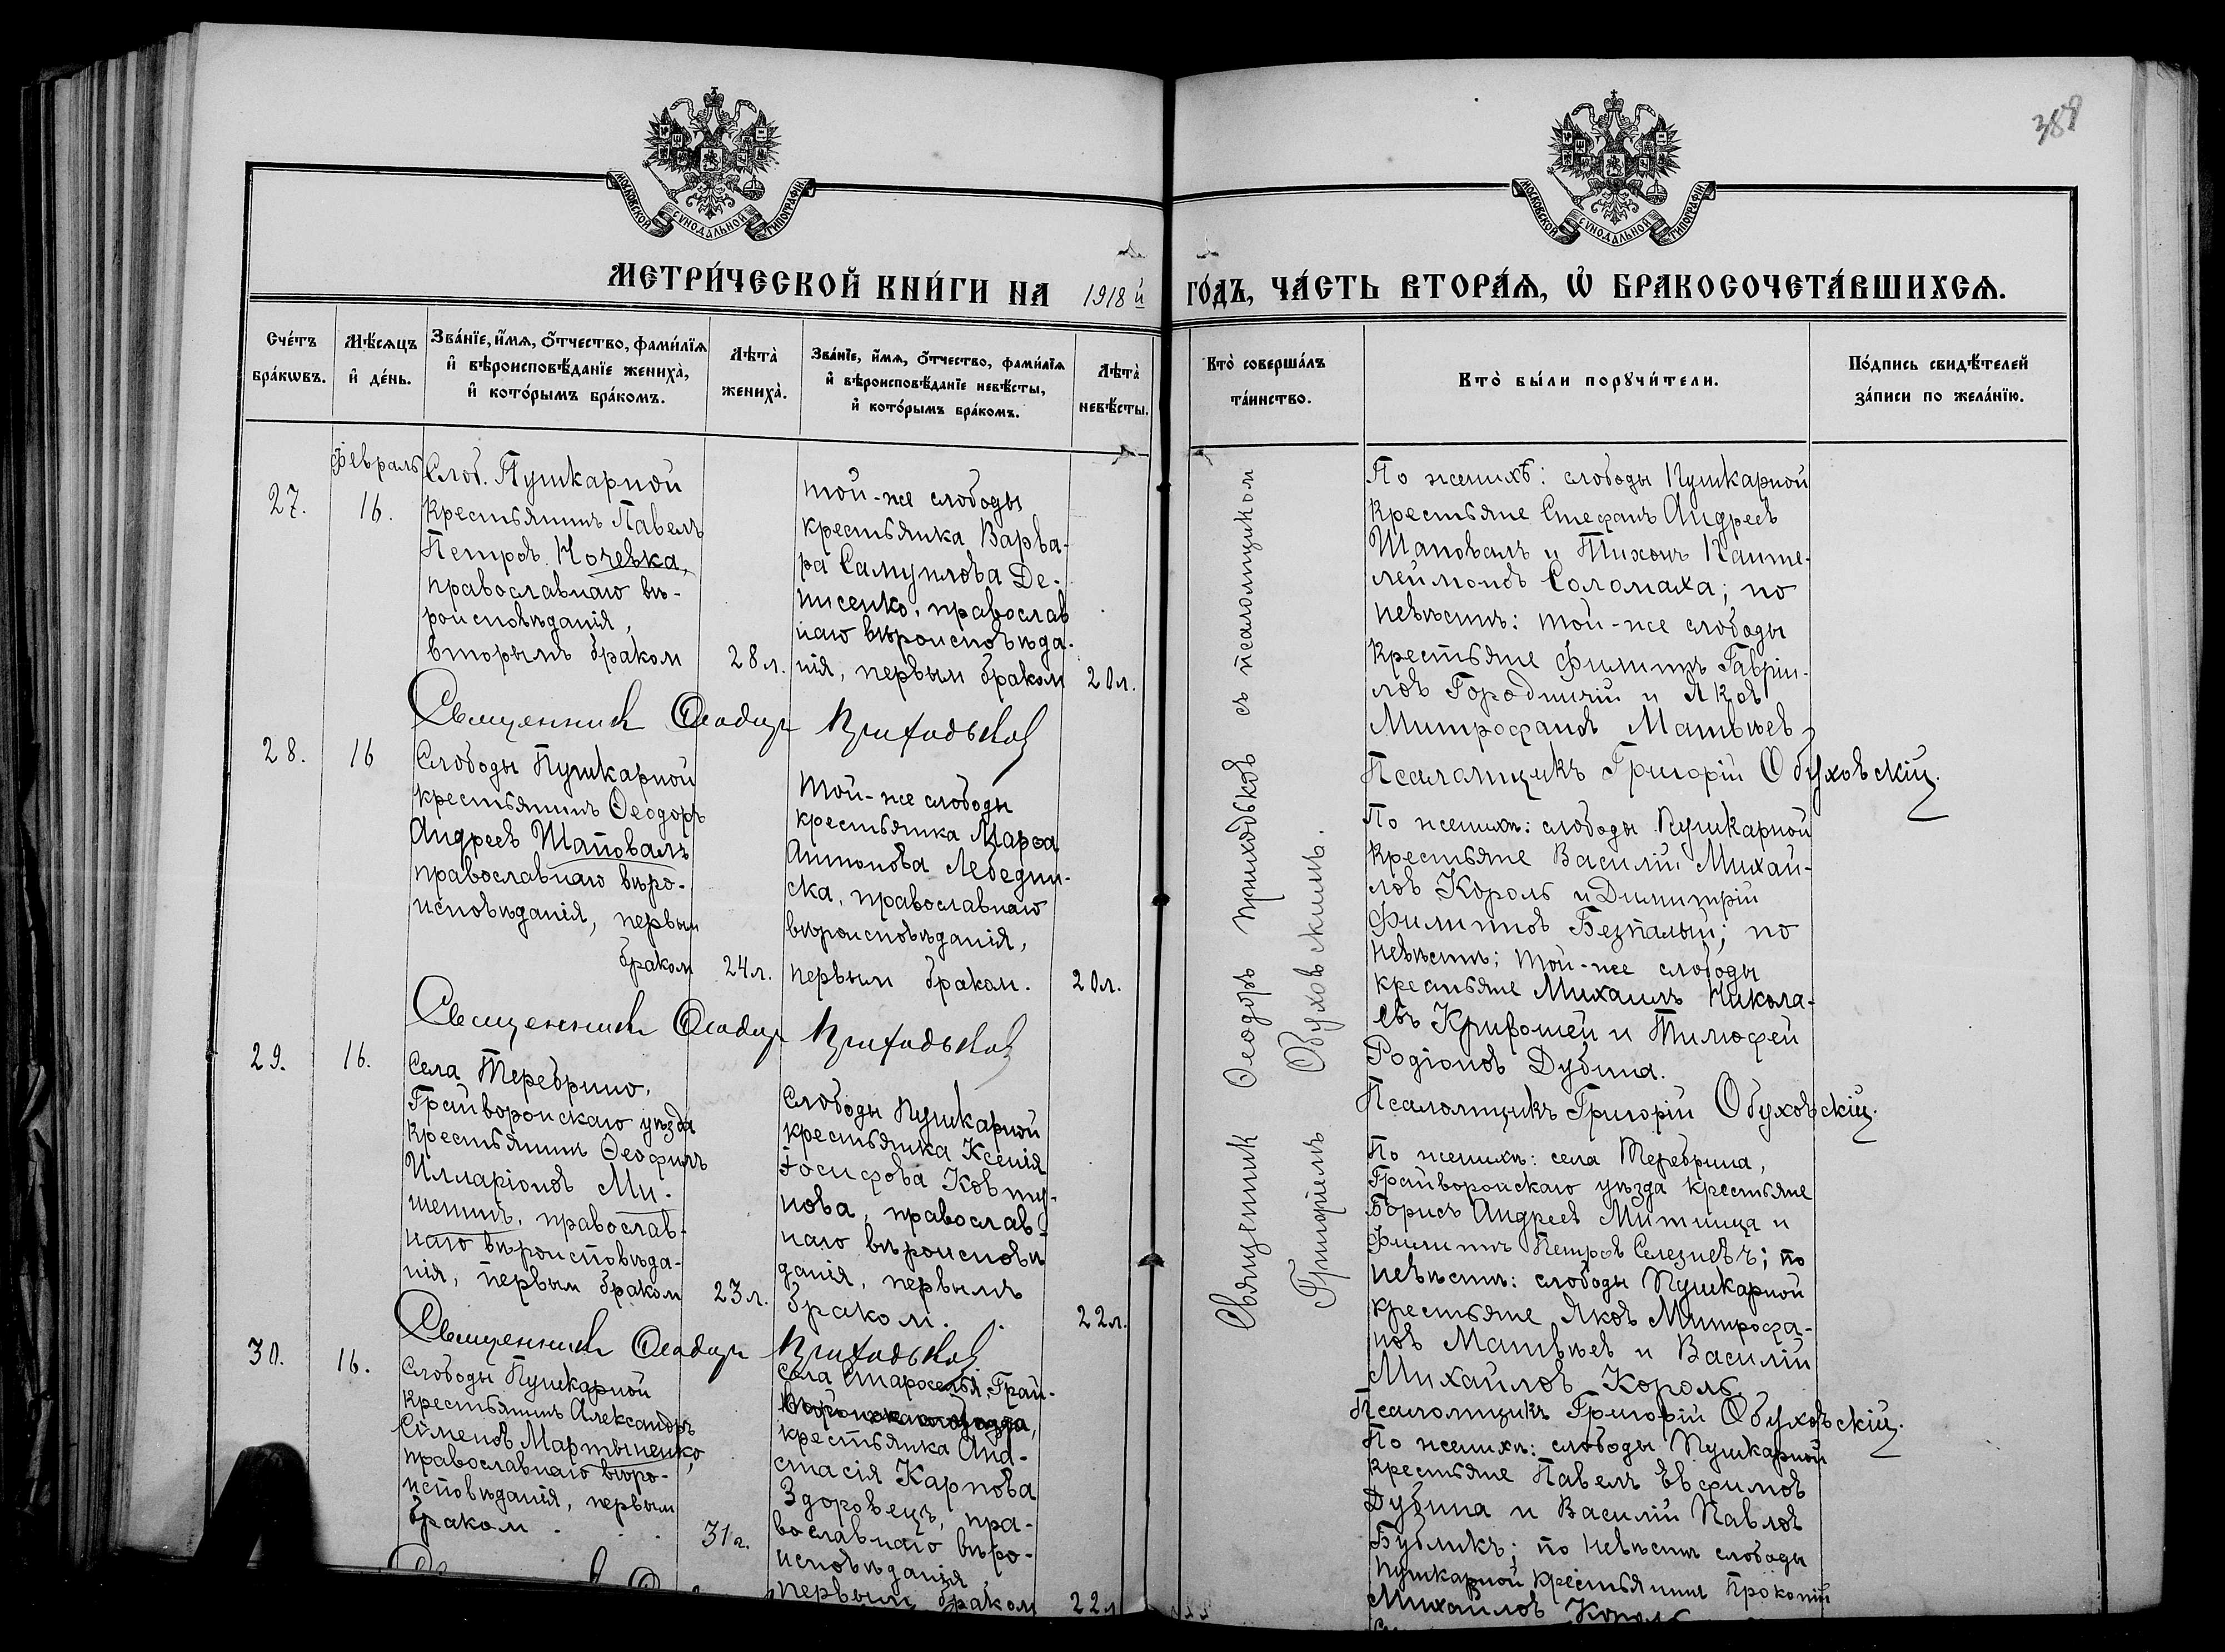 389
МОСКОВСКОЙ СѴНОДАЛЬНОЙ ТИПОГРАФІИ
МОСКОВСКОЙ СѴНОДАЛЬНОЙ ТИПОГРАФІИ
МЕТРИ́ЧЕСКОЙ КНИ́ГИ НА 1918 й ГО́ДЪ, ЧА́СТЬ ВТОРА́Ѧ, Ѡ҆ БРАКОСОЧЕТА́ВШИХСѦ.
Сче́тъ
бра́кѡвъ.
Мѣ́сѧцъ
и҆ де́нь.
Зва́нїе, и҆́мѧ, ѻ҆́тчество, фами́лїѧ
и҆ вѣроисповѣ́данїе жениха̀,
и҆ кото́рымъ бра́комъ.
Лѣта̀
жениха̀.
Зва́нїе, и҆́мѧ, ѻ҆́тчество, фами́лїѧ
и҆ вѣроисповѣ́данїе невѣ́сты,
и҆ кото́рымъ бра́комъ.
Лѣта̀
невѣ́сты.
Кто̀ соверша́лъ
та́инство.
Кто̀ бы́ли порꙋчи́тели.
По́дпись свидѣ́телей
за́писи по жела́нїю.
27.
февраль
16.
Слоб. Пушкарной
крестьянинъ Павелъ
Петров Ночевка,
православнаго вѣ-
роисповѣданія,
вторымъ браком
28 л.
той-же слободы
крестьянка Варва-
ра Самуилова Де-
нисенко, православ
наго вѣроисповѣда-
нія, первым браком
20 л.
Священник Ѳеодор Приходьков
По женихѣ: слободы Пушкарной
крестьяне Стефанъ Андреев
Шаповалъ и Тихонъ Панте-
леймонов Соломаха; по
невѣстѣ: той-же слободы
крестьяне Филиппъ Гаврiи-
лов Городничій и Яков
Митрофанов Матвѣев
Псаломщикъ Григорій Обуховскій.
28.
16
Слободы Пушкарной
крестьянинъ Ѳеодоръ
Андреев Шаповалъ
православнаго вѣро-
исповѣданія, первым
браком
24 л.
Той-же слободы
крестьянка Марѳа
Антонова Лебедин-
ска, православнаго
вѣроисповѣданія,
первым браком.
20 л.
Священник Ѳеодор Приходьков
По женихѣ: слободы Пушкарной
крестьяне Василій Михай-
лов Король и Димитрій
Филиппов Безпалый; по
невѣстѣ: той-же слободы
крестьяне Михаилъ Никола-
евъ Кривошеи и Тимофей
Родіонов Дубина.
Псаломщикъ Григорій Обуховскій.
29.
16.
Села Теребрино,
Грайворонскаго уѣзда
крестьянинъ Ѳеофилъ
Илларіонов Ми-
шенинъ, православ-
наго вѣроисповѣда-
нія, первым браком
23 л.
Слободы Пушкарной
крестьянка Ксенія
Іосифова Ковту-
нова, православ-
наго вѣроисповѣ
данія, первымъ
браком.
22 л.
Священник Ѳеодор Приходьков
По женихѣ: села Теребрина,
Грайворонскаго уѣзда крестьяне
Борисъ Андреев Митница и
Филиппъ Петров Селезневъ; по
невѣстѣ: слободы Пушкарной
крестьяне Яков Митрофа-
нов Матвѣев и Василій
Михайлов Король.
Псаломщикъ Григорій Обуховскій.
30.
16.
Слободы Пушкарной
крестьянинъ Александръ
Сименов Мартыненко,
православнаго вѣро-
исповѣданія, первым
браком
31 г.
Села Староселья, Грай-
крестьянка Ана-
стасія Карпова
Здоровецъ, пра-
вославнаго вѣро-
исповѣданія,
первым браком
22 л
По женихѣ: слободы Пушкарной
крестьяне Павелъ Евфимов
Дубина и Василій Павлов
Бубликъ; по невѣстѣ слободы
Пушкарной крестьянинъ Прокопій
Михайлов Король
Священник Ѳеодоръ Приходьков съ псаломщиком
Григоріемъ Обуховскимъ.